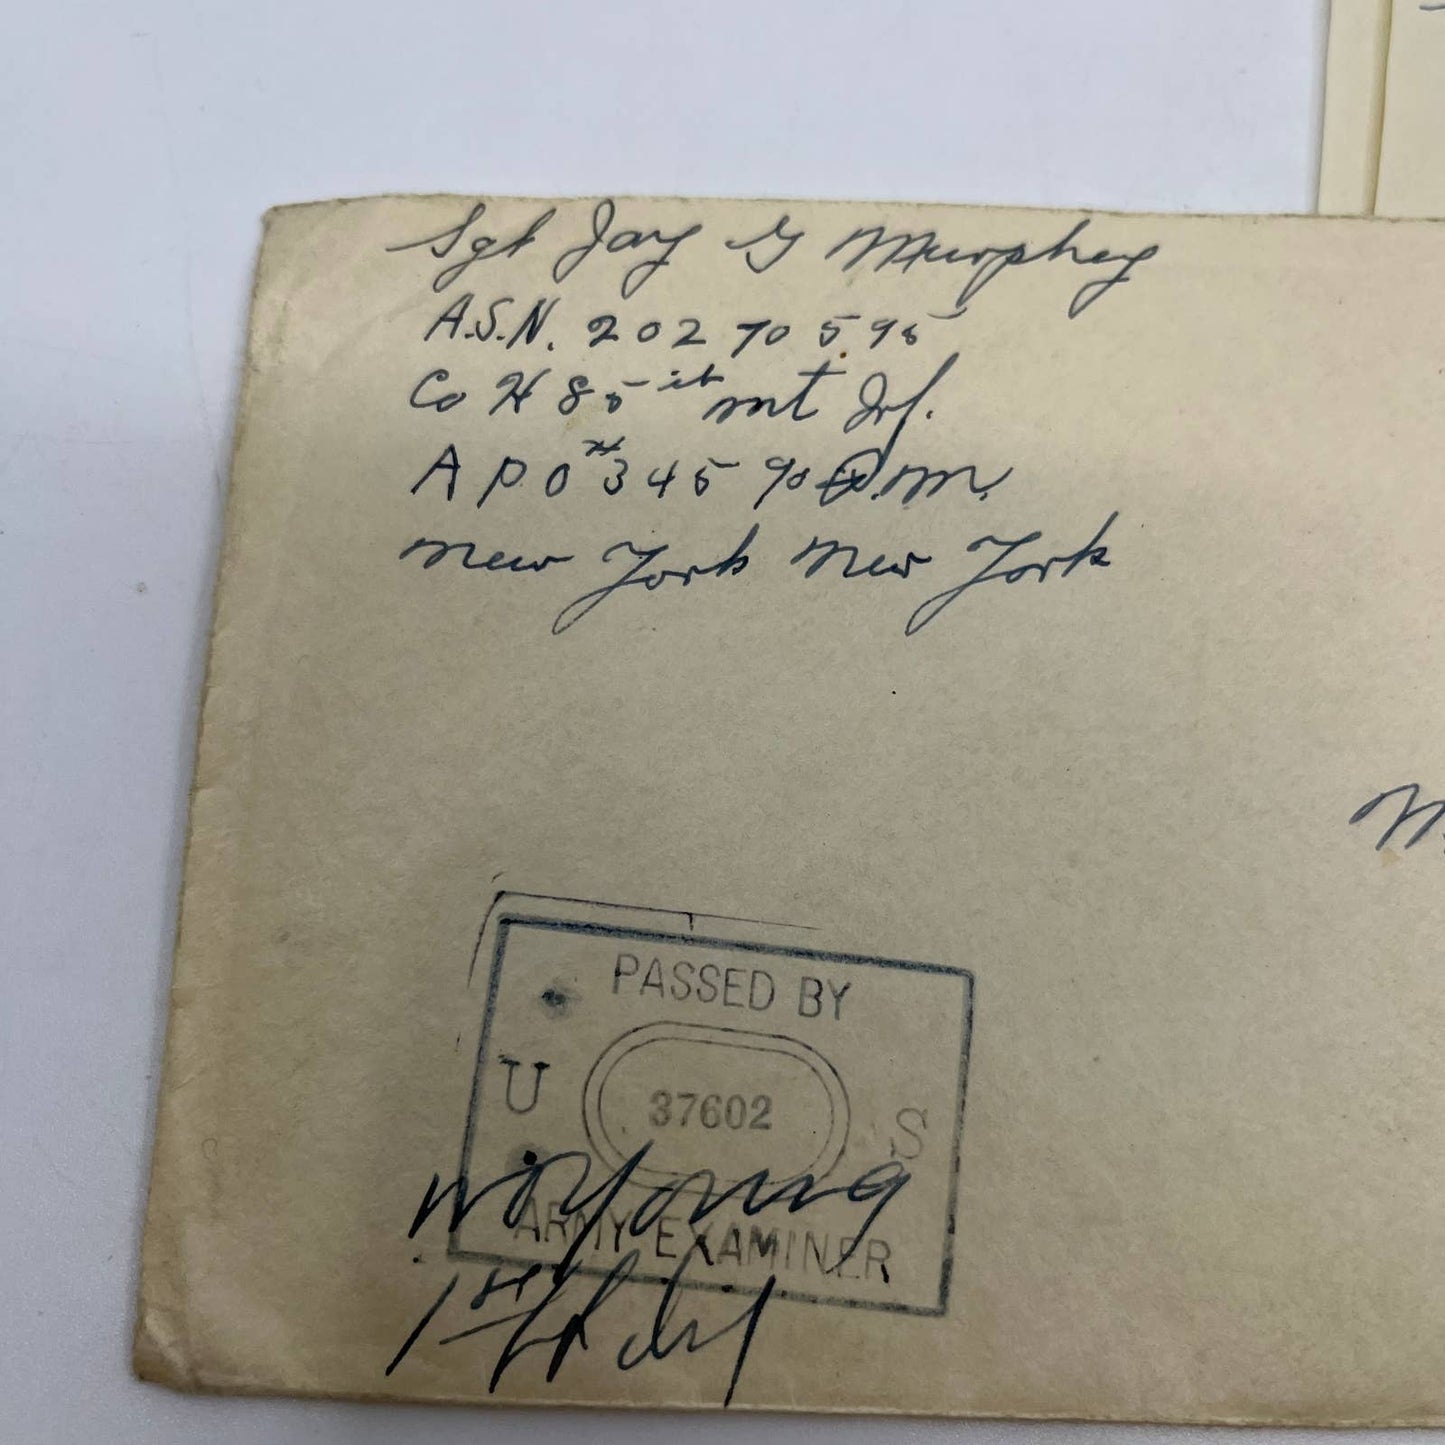 Sgt Jay G Murphey
A.S.N. 20270595
Co H 85 mt Inf.
A P O # 345 % P.M.
New York New York
PASSED BY
U 37602 S
ARMY EXAMINER
Young
1st Lt Inf